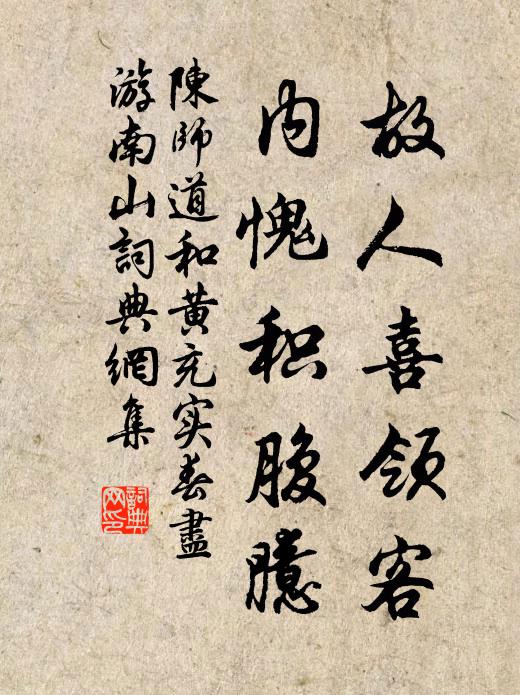 故人喜领客
内愧积腹臆
陳師道和黄充实春盡
游南山詞典網集
詞典网印